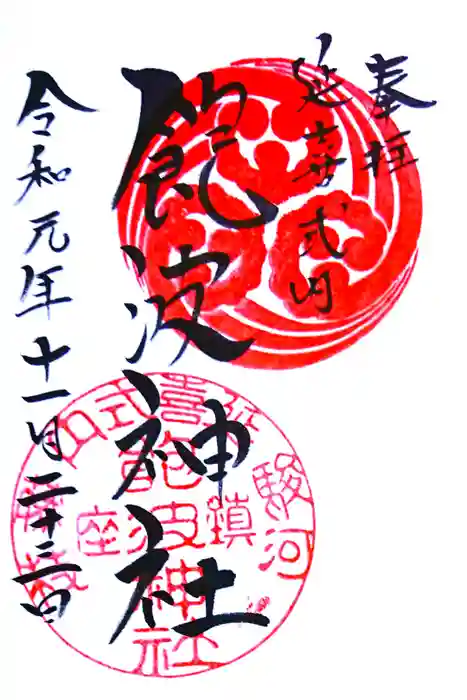 奉拝
延喜式内
飽波神社
令和元年十一月二十三日
延喜式内
駿河
鎮座
飽波神社